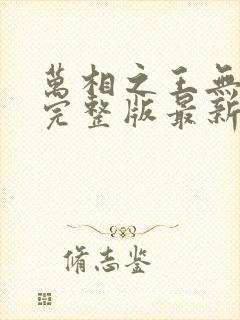 萬相之王無
完整版最新
脩志鉴